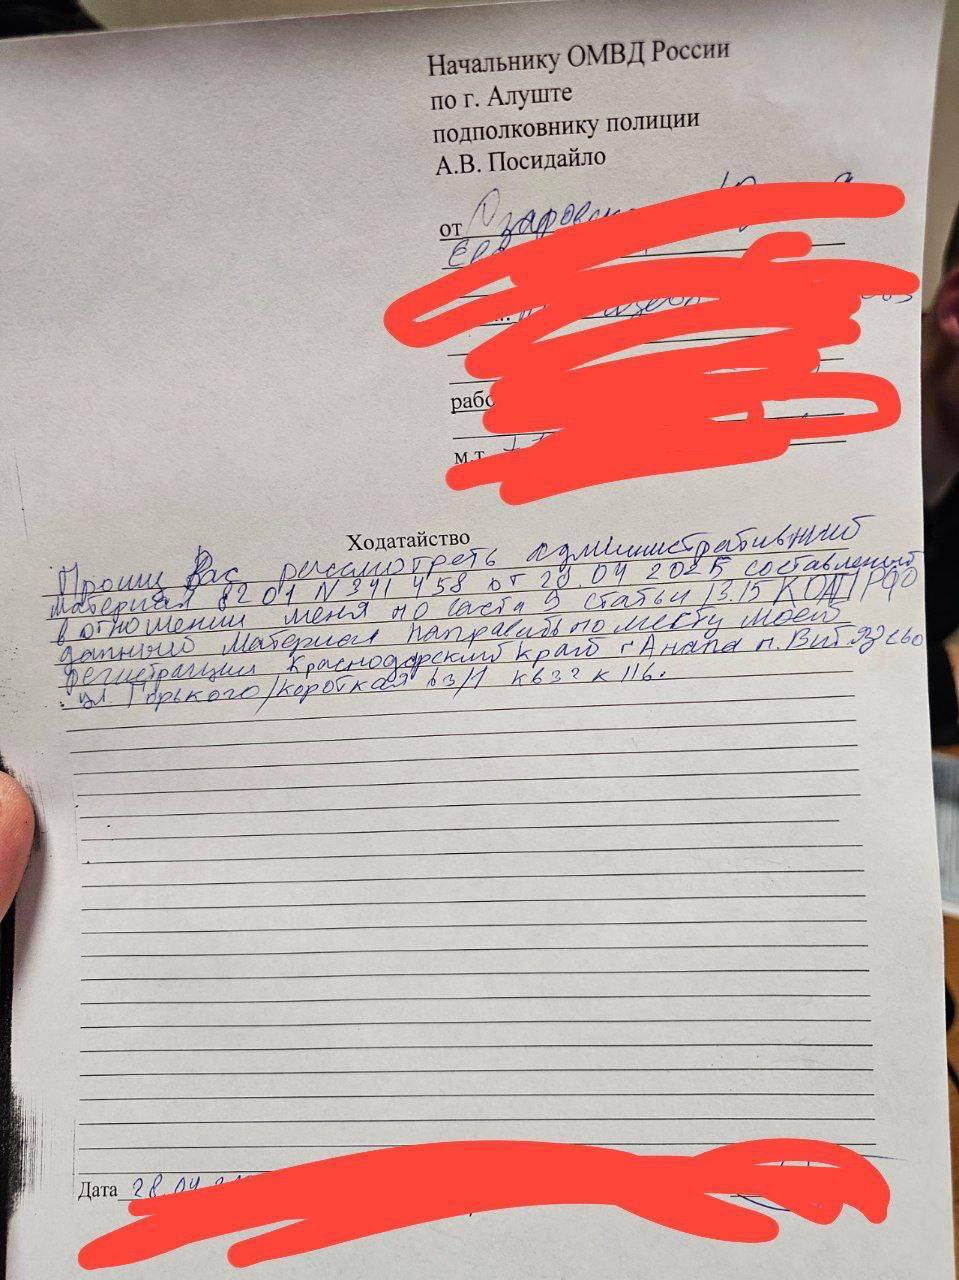 Начальнику ОМВД России
по г. Алуште
подполковнику полиции
А.В. Посидайло
от
рабо
м.т.
Ходатайство
Прошу Вас рассмотреть административный
материал 8201 N 341 458 от 28.04 2025 составленный
в отношении меня по части 9 статьи 13.15 КОАП РФ
данный материал направить по месту моей
регистрации Краснодарский край г Анапа п. Витязево
ул. Горького/Короткая д3/1 кв32 к 116.
Дата 28.04